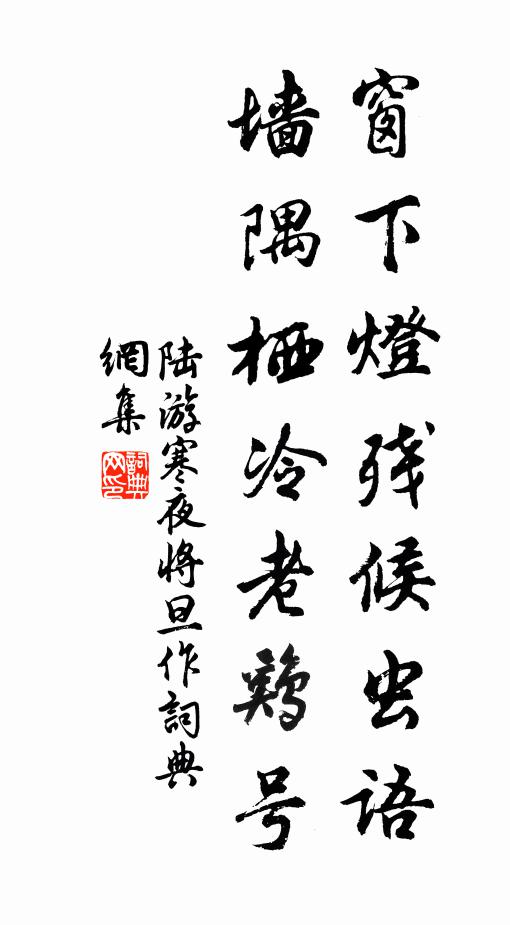 窗下燈残候虫语
墙隅栖冷老鷄号
陆游寒夜將旦作詞典
網集
詞典网印